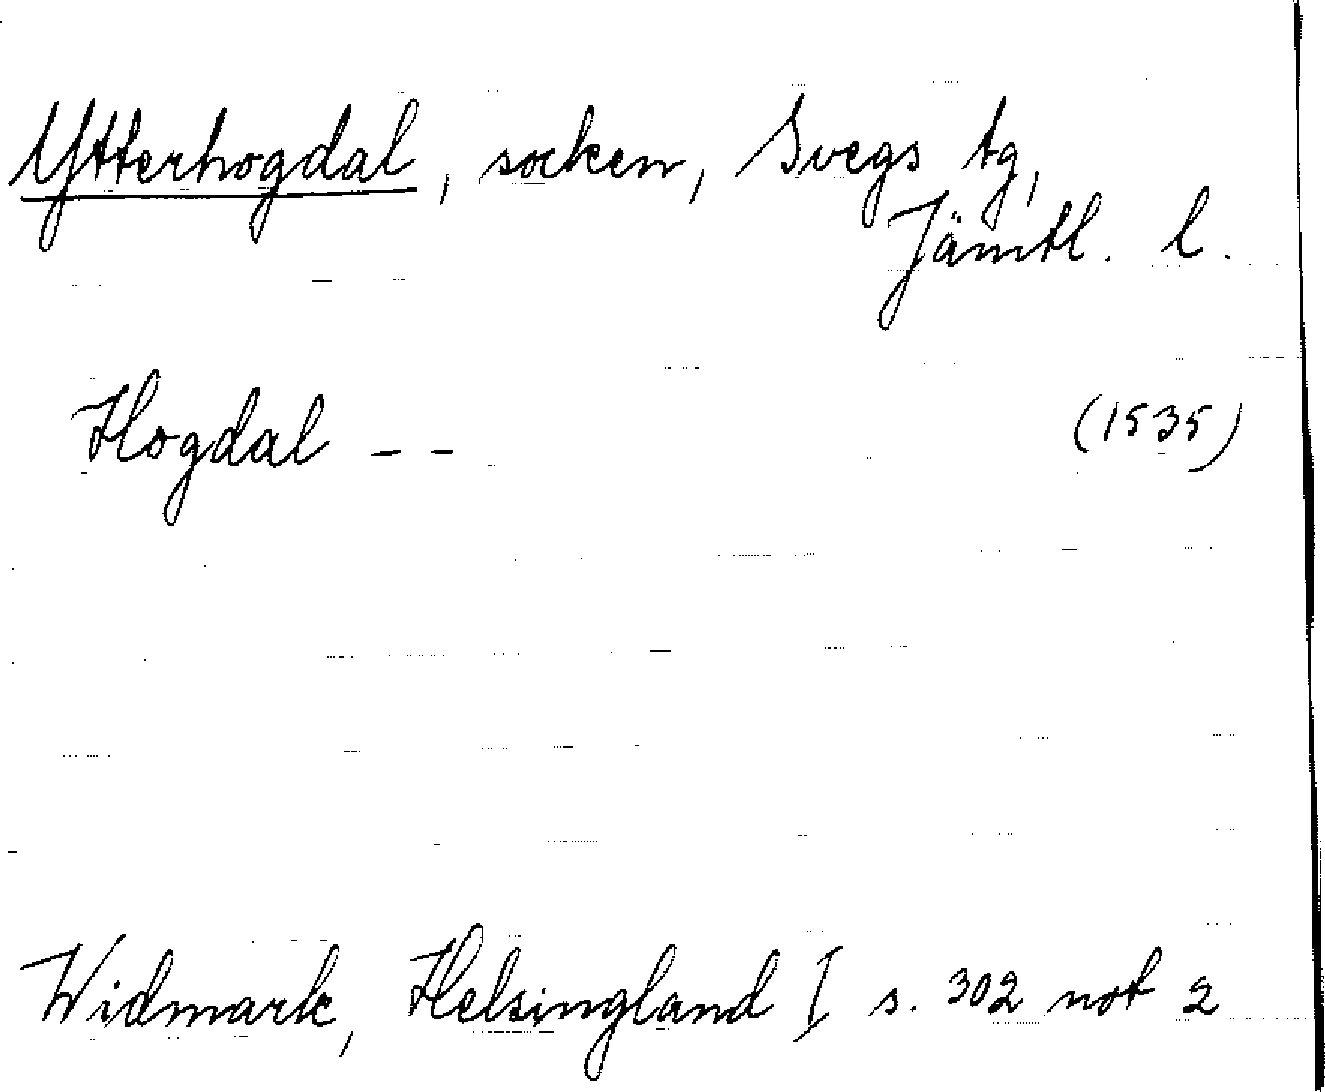 Ytterhogdal, socken, Svegs tg,
Jämtl. l.
Hogdal -- (1535)
Widmark, Helsingland I s. 302 not 2